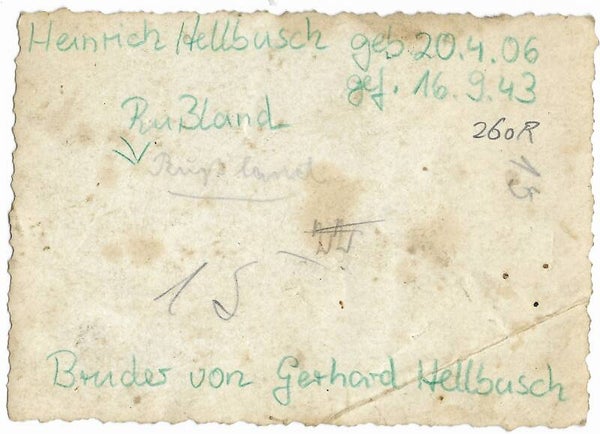 Heinrich Hellbusch geb 20.4.06
gef. 16.9.43
Rußland
260R
Rußland
15
15
Bruder von Gerhard Hellbusch